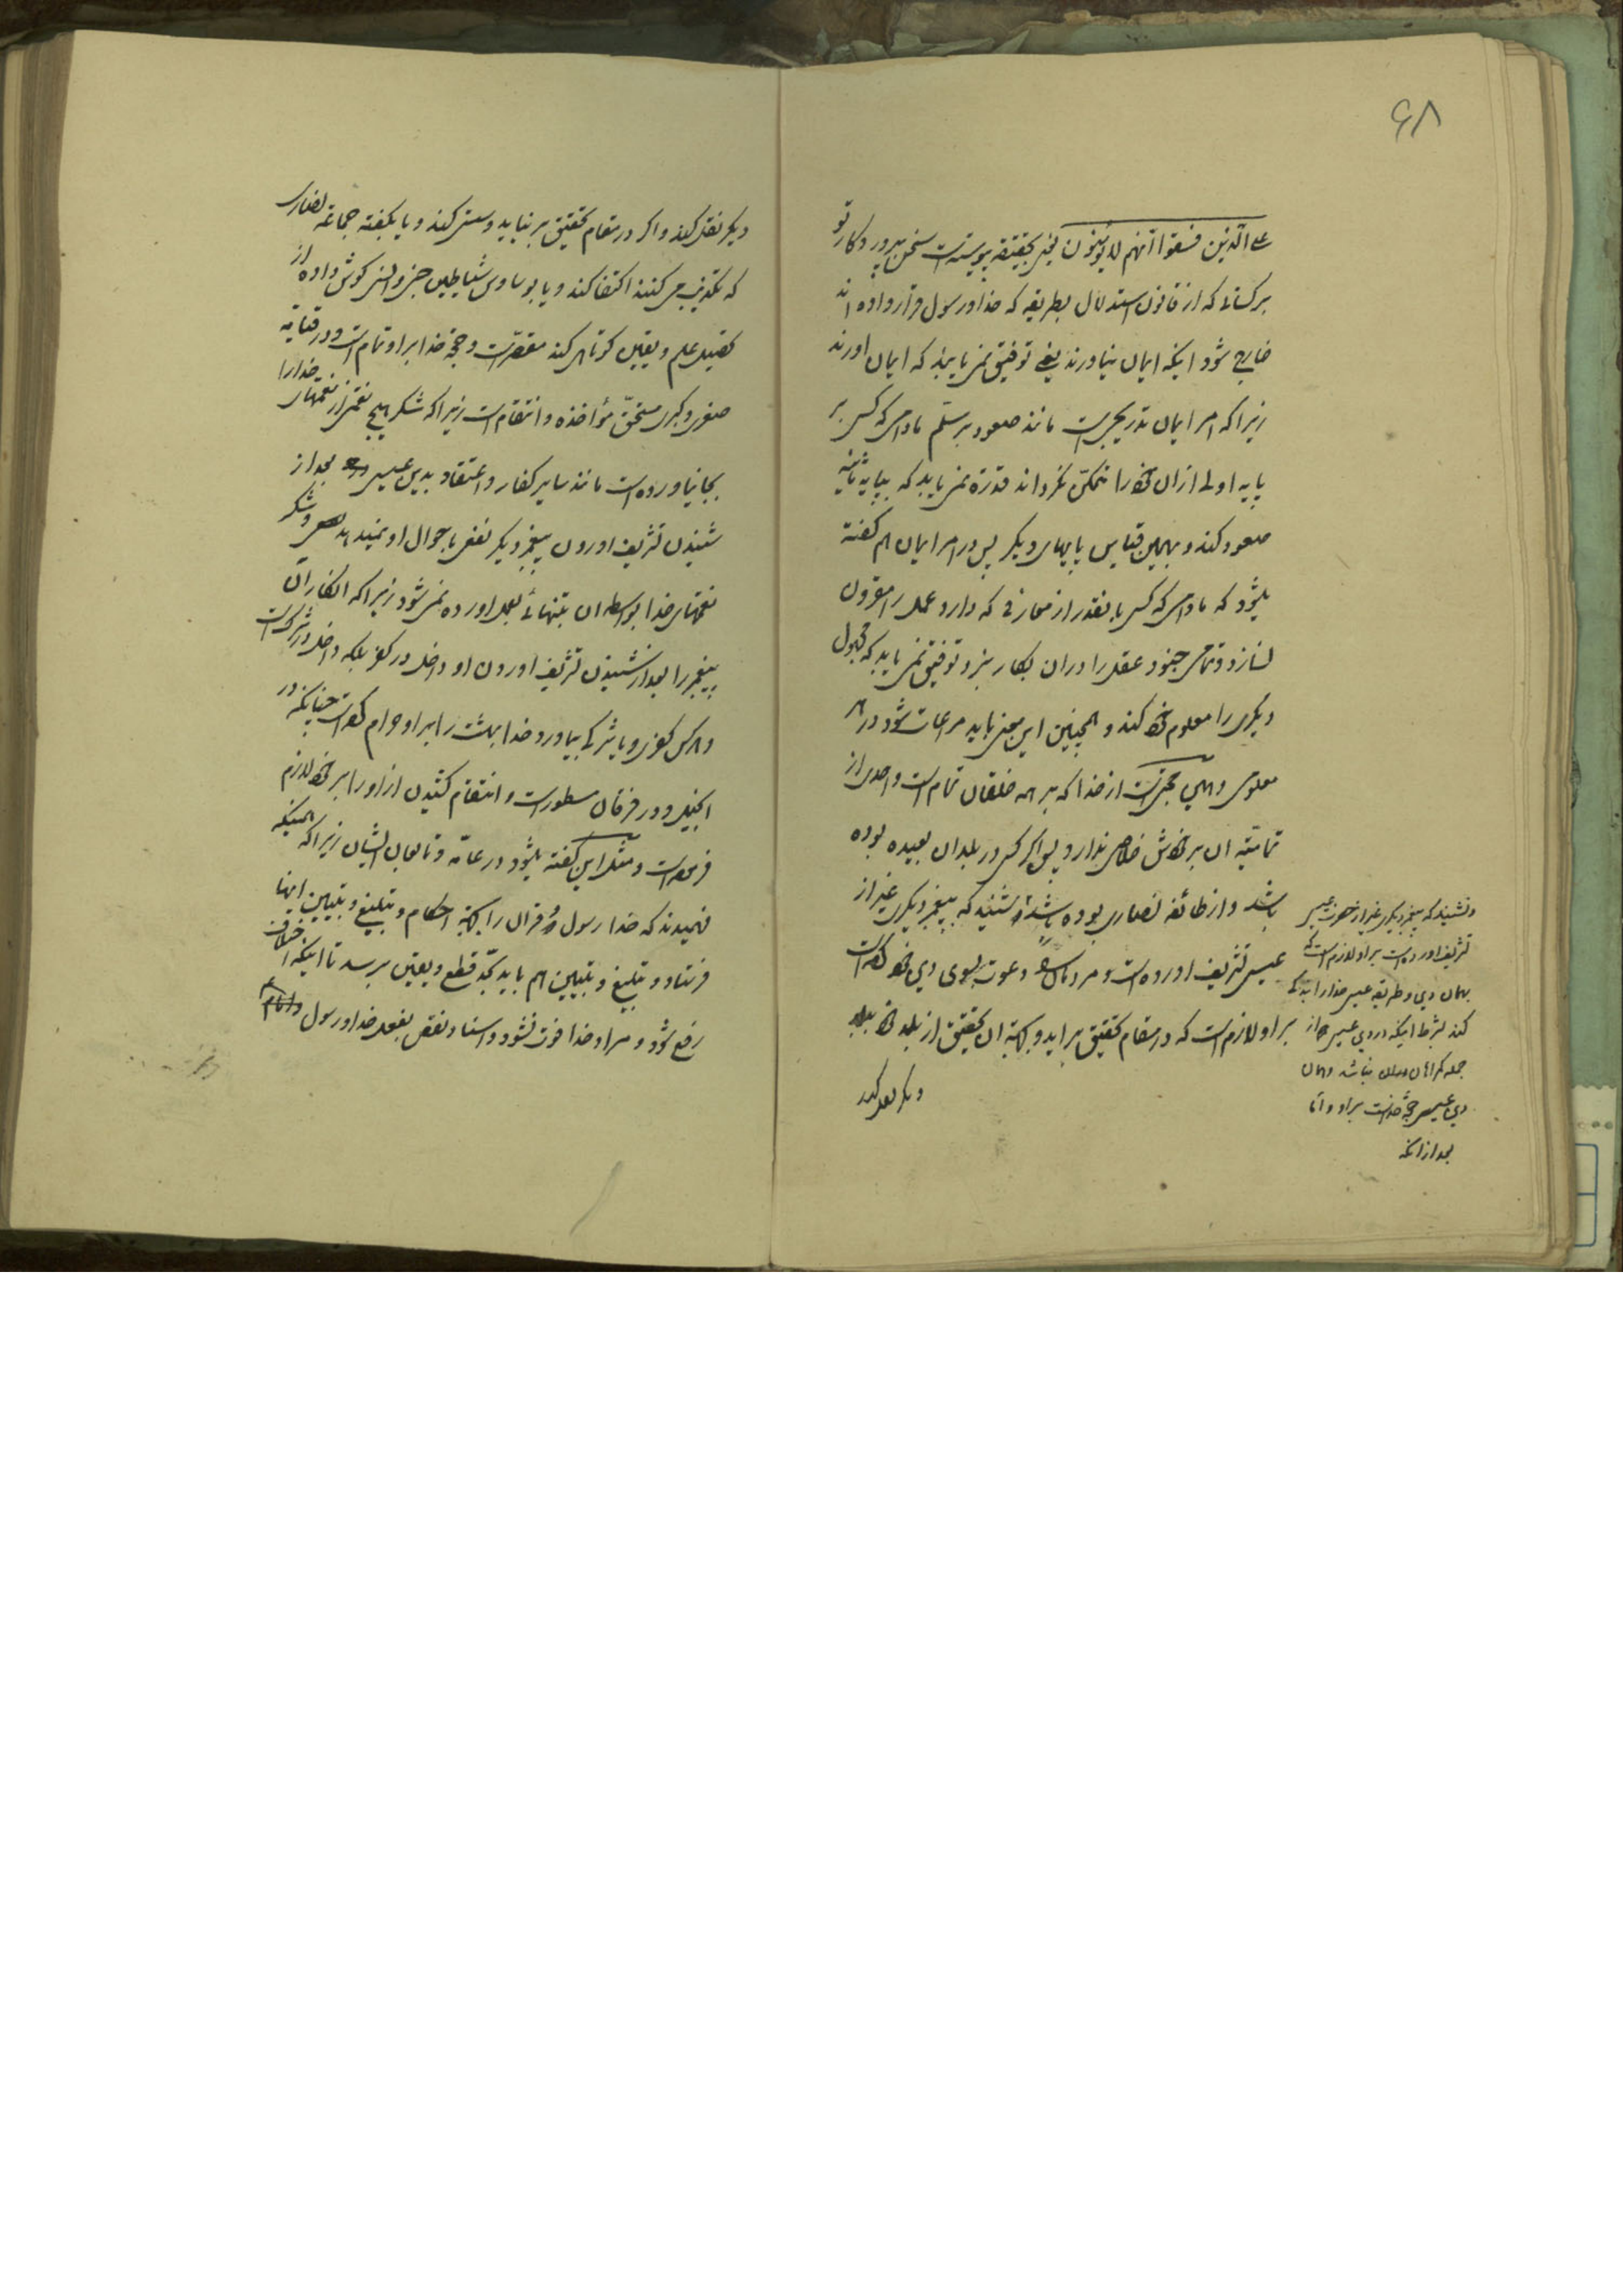 ۶۸
علی الّذین فسقوا انّهم لا یؤمنون یعنی بحقیقة پیوسته است سخن پروردکار تو
بر کسانی که از قانون استدلال بطریقه که خدا و رسول قرار داده اند
خارج شود اینکه ایمان نیاورند یعنی توفیق نمی یابند که ایمان اورند
زیرا که امر ایمان تدریجی است مانند صعود بر سلّم مادامی که کسی بر
پایه اولی از ان خود را متمکّن نکرداند قدرة نمی یابد که بپایه ثانیه
صعود کند و بهمین قیاس پایهای دیکر پس در امر ایمان هم کفته
میشود که مادامی که کسی بانقدر از معارفی که دارد عمل را مقرون
نسازد و تمامی جنود عقل را در ان بکار نبرد توفیق نمی یابد که مجهول
دیکری را معلوم خود کند و همچنین این معنی باید مراعات شود در هر
معلومی و همین حجتی است از خدا که بر همه خلقان تمام است و احدی از
تمامیّة ان بر خودش خلاصی ندارد پس اکر کسی در بلدان بعیده بوده
باشد و از طائفه نصاری بوده باشد و شنید که پیغمبر دیکری غیر از
عیسی تشریف اورده است و مردمان را دعوت بسوی دین خود کرده است
بر او لازم است که در مقام تحقیق بر اید و بجهة ان تحقیق از بلد خود ببلد
دیکر نقل کند
و نشنید که پیغمبر دیکری غیر از حضرت عیسی
تشریف اورده است بر او لازم است که
بهمان دین و طریقه عیسی خدا را بندکی
کند بشرط اینکه در دین عیسی هم از
جمله کمراهان نباشد و همان
دین عیسی حجّة خداست بر او و امّا
بعد از انکه
دیکر نقل کند و اکر در مقام تحقیق بر نیاید و سستی کند و یا بکفته جماعة نصاری
که تکذیب می کنند اکتفا کند و یا بوساوس شیاطین جنی و انسی کوش داده از
تحصیل علم و یقین کوتاهی کند مقصّر است و حجّة خدا بر او تمام است و در قیامة
صغری و کبری مستحقّ مؤاخذه و انتقام است زیرا که شکر هیچ نعمتی از نعمتهای خدا را
بجا نیاورده است مانند سایر کفار و اعتقاد بدین عیسی بعد از
شنیدن تشریف اوردن پیغمبر دیکر نفعی باحوال او نمیدهد و شکر
نعمتهای خدا بواسطه ان بتنهائی بعمل اورده نمی شود زیرا که انکار ان
پیغمبر را بعد از شنیدن تشریف اوردن او داخل در کفر بلکه داخل در شرک است
و هر کس کفری و یا شرکی بیاورد خدا بهشت را بر او حرام کرده است چنانکه در
انجیل و در فرقان مسطور است و انتقام کشیدن از او را بر خود لازم
فرموده است و مثل این کفته میشود در عامّه و تابعان ایشان زیرا که همینکه
فهمیدند که خدا رسول و قران را بجهة احکام و تبلیغ و تبیین اینها
فرستاد و تبلیغ و تبیین هم باید بحدّ قطع و یقین برسد تا اینکه اختلاف
رفع شود و مراد خدا فوت نشود و اسناد نقص بفعل خدا و رسول و امام